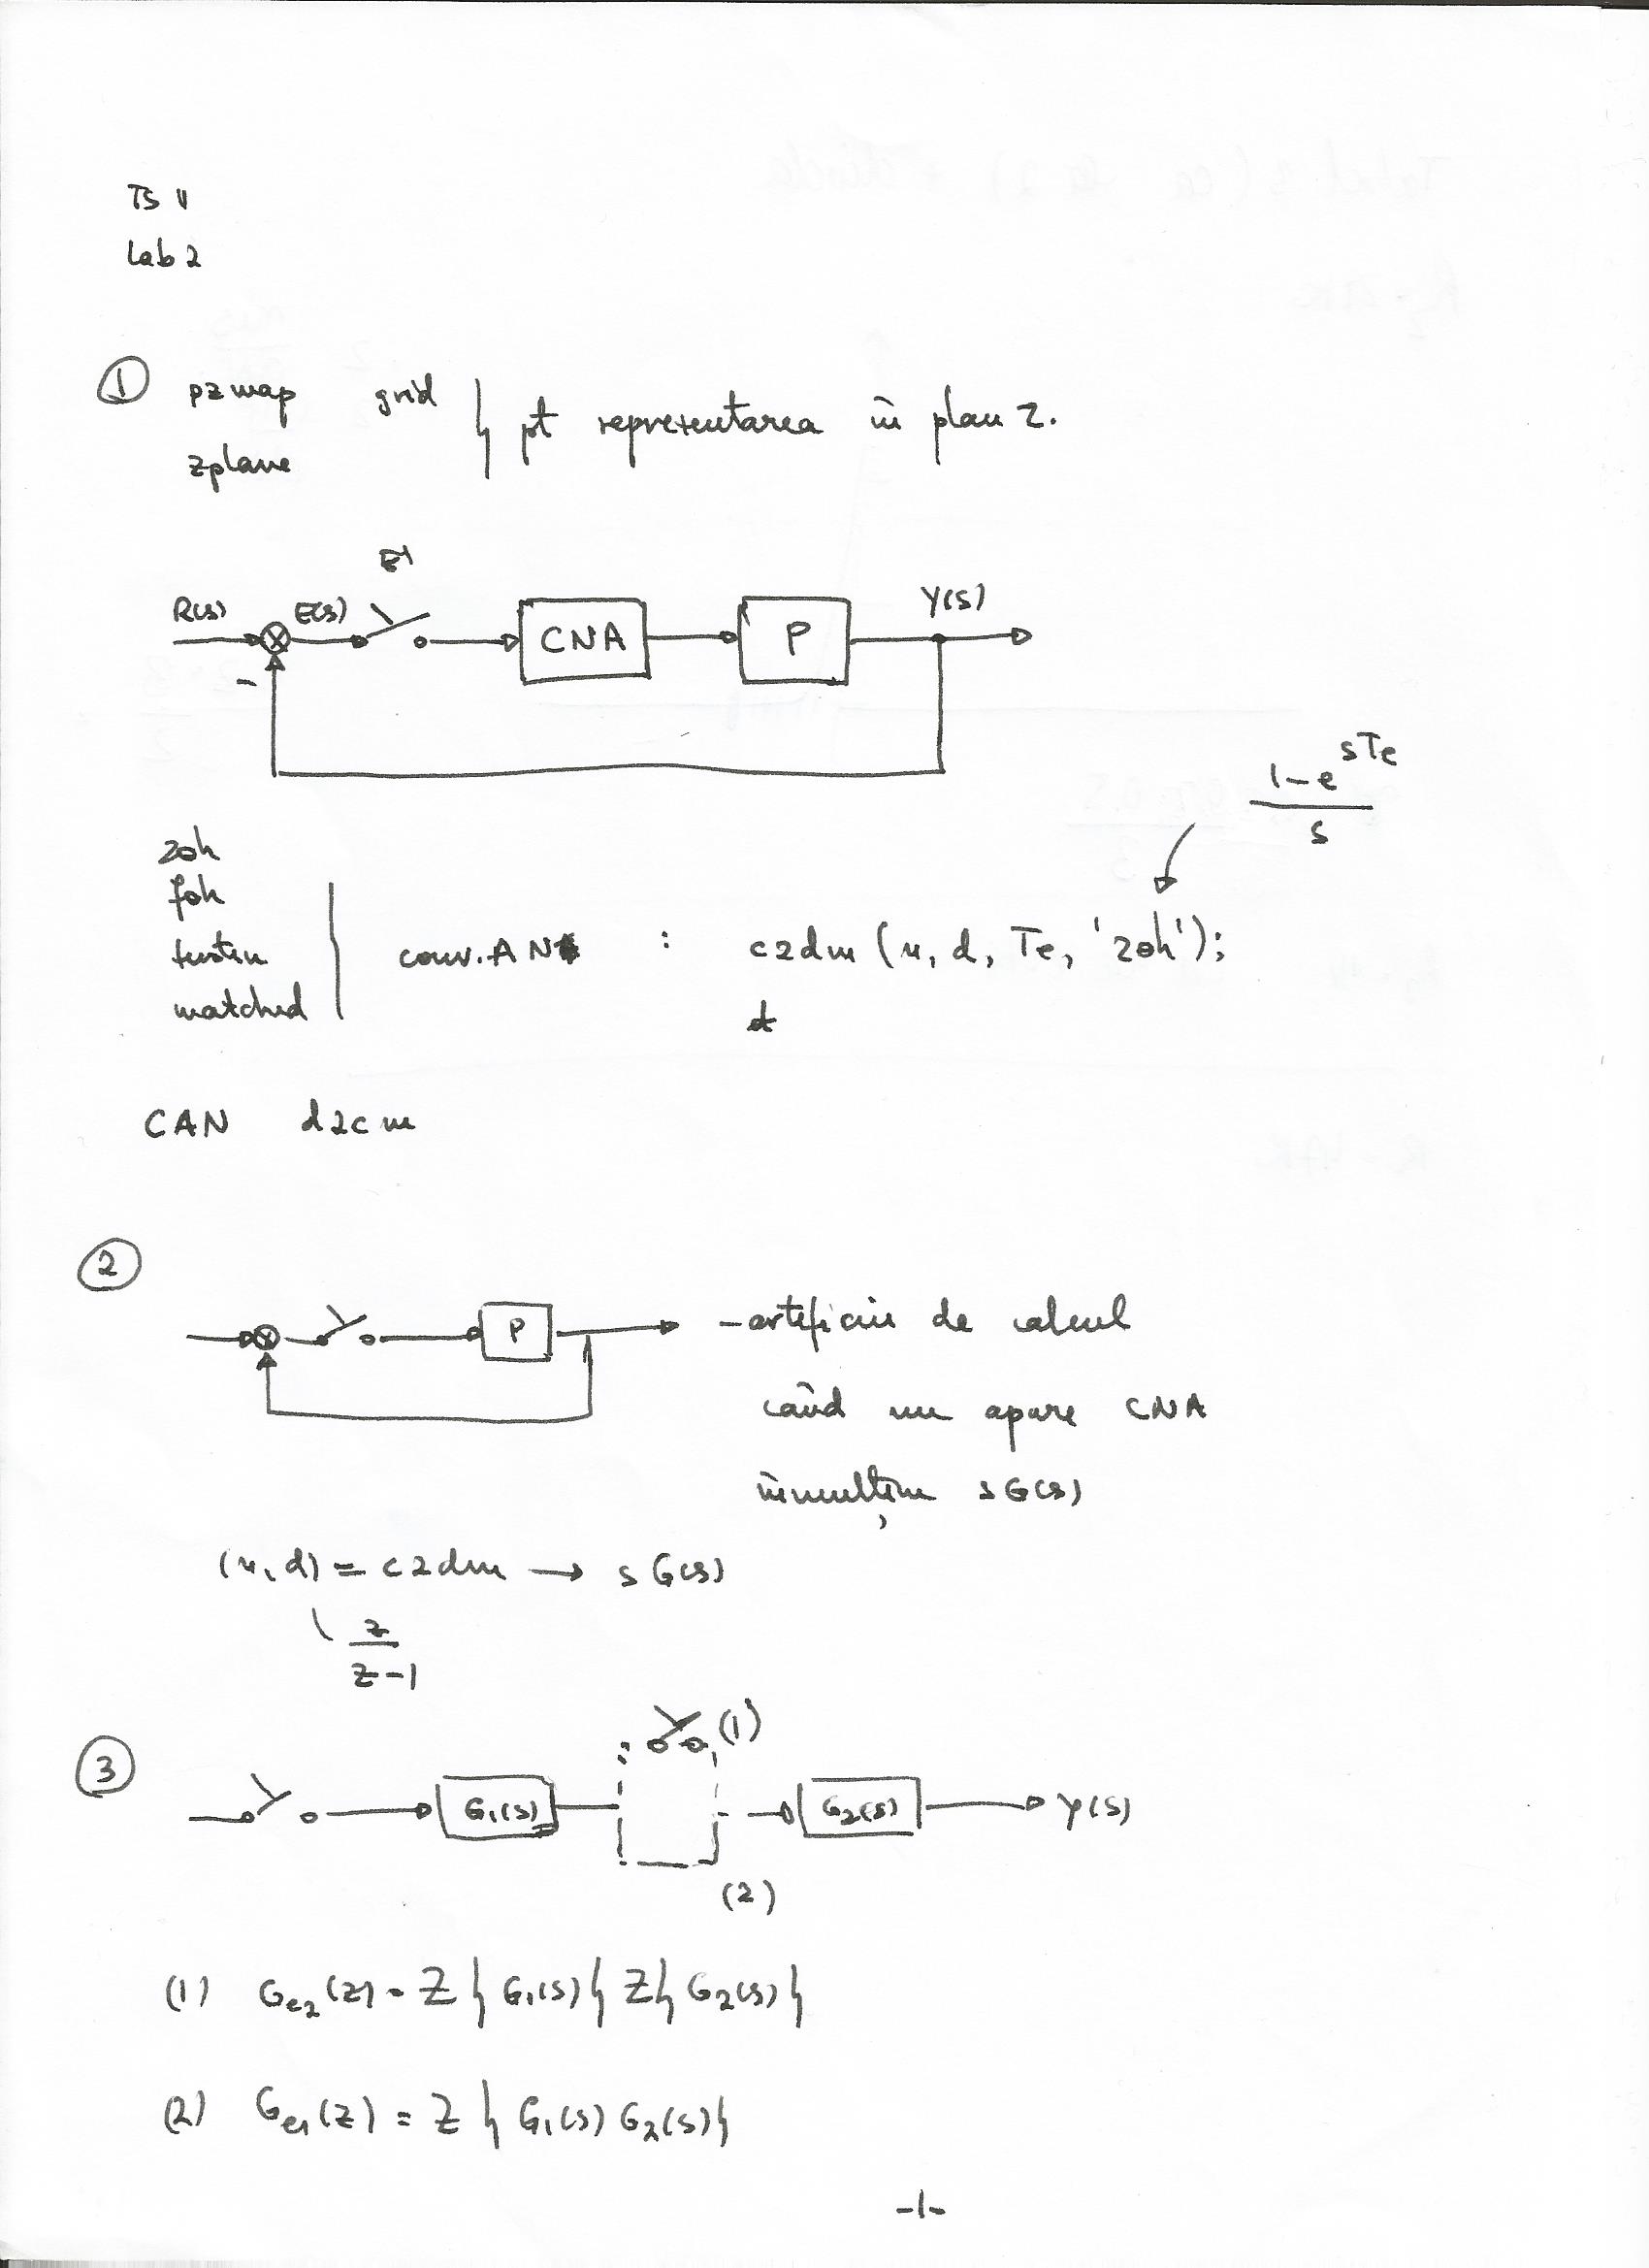 TS II
Lab 2
① pzmap grid } pt reprezentarea în plan z.
zplane
R(s) E(s) CNA P Y(s)
-
1-e^sTe
s
zoh
foh
tustin
matched
conv. AN : c2dm (n, d, Te, 'zoh');
CAN d2cm
②
P - artificiu de calcul
când nu apare CNA
înmulțim sG(s)
(n, d) = c2dm → sG(s)
z
z-1
③
(1)
G1(s) G2(s) Y(s)
(2)
(1) Ge2(z) = Z{G1(s)} Z{G2(s)}
(2) Ge1(z) = Z{G1(s) G2(s)}
-1-